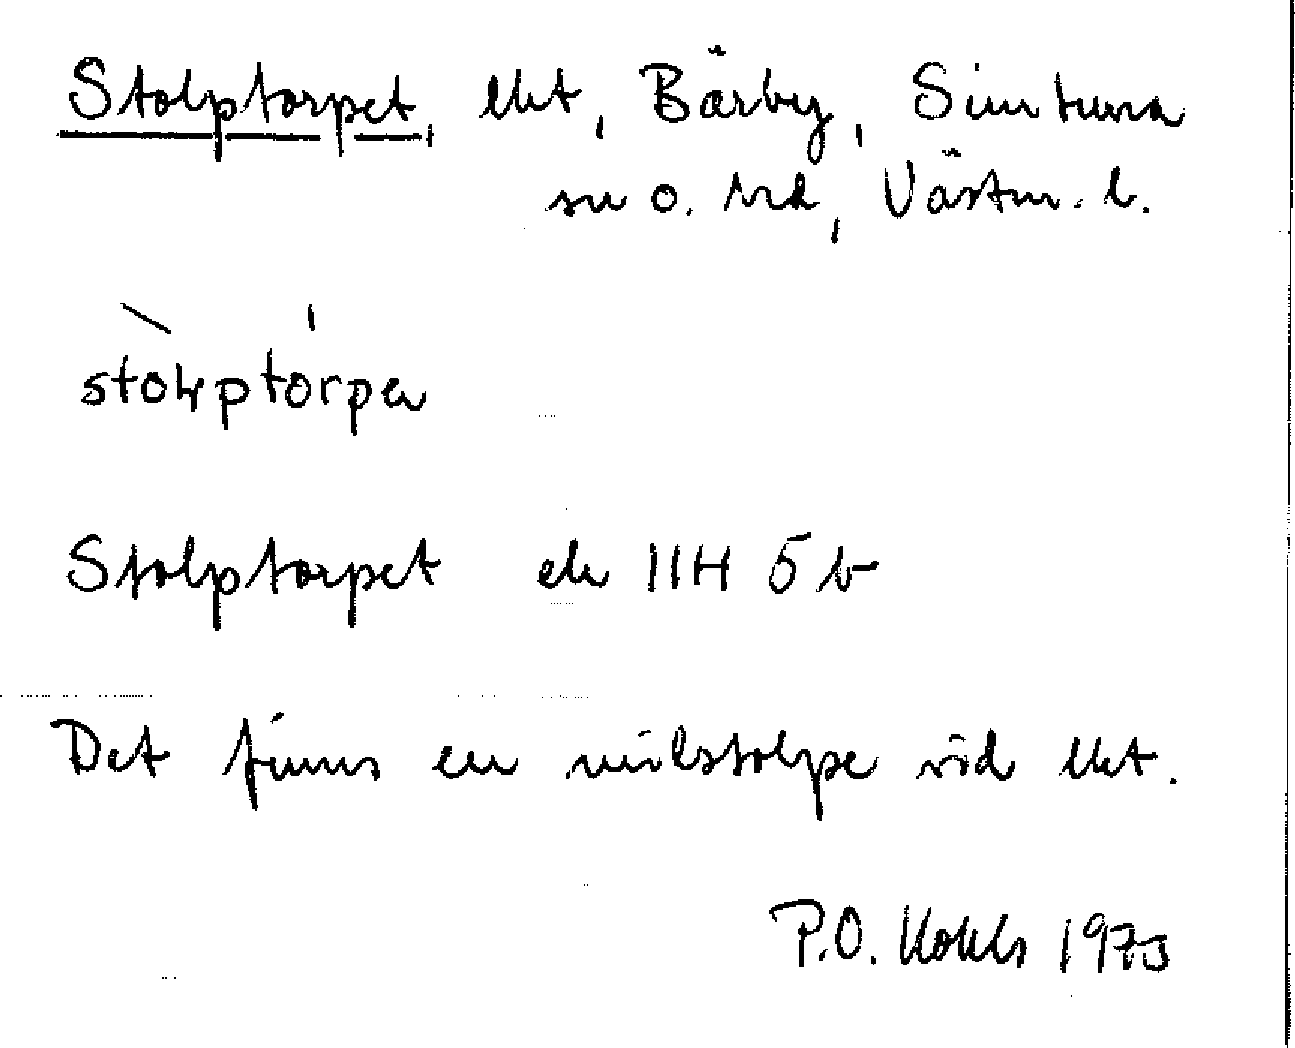 Stolptorpet, lht, Bärby, Simtuna
sn o. hd, Västm. l.
stòlptórpe
Stolptorpet ek 11H 5b
Det finns en milstolpe vid lht.
P.O. 1973